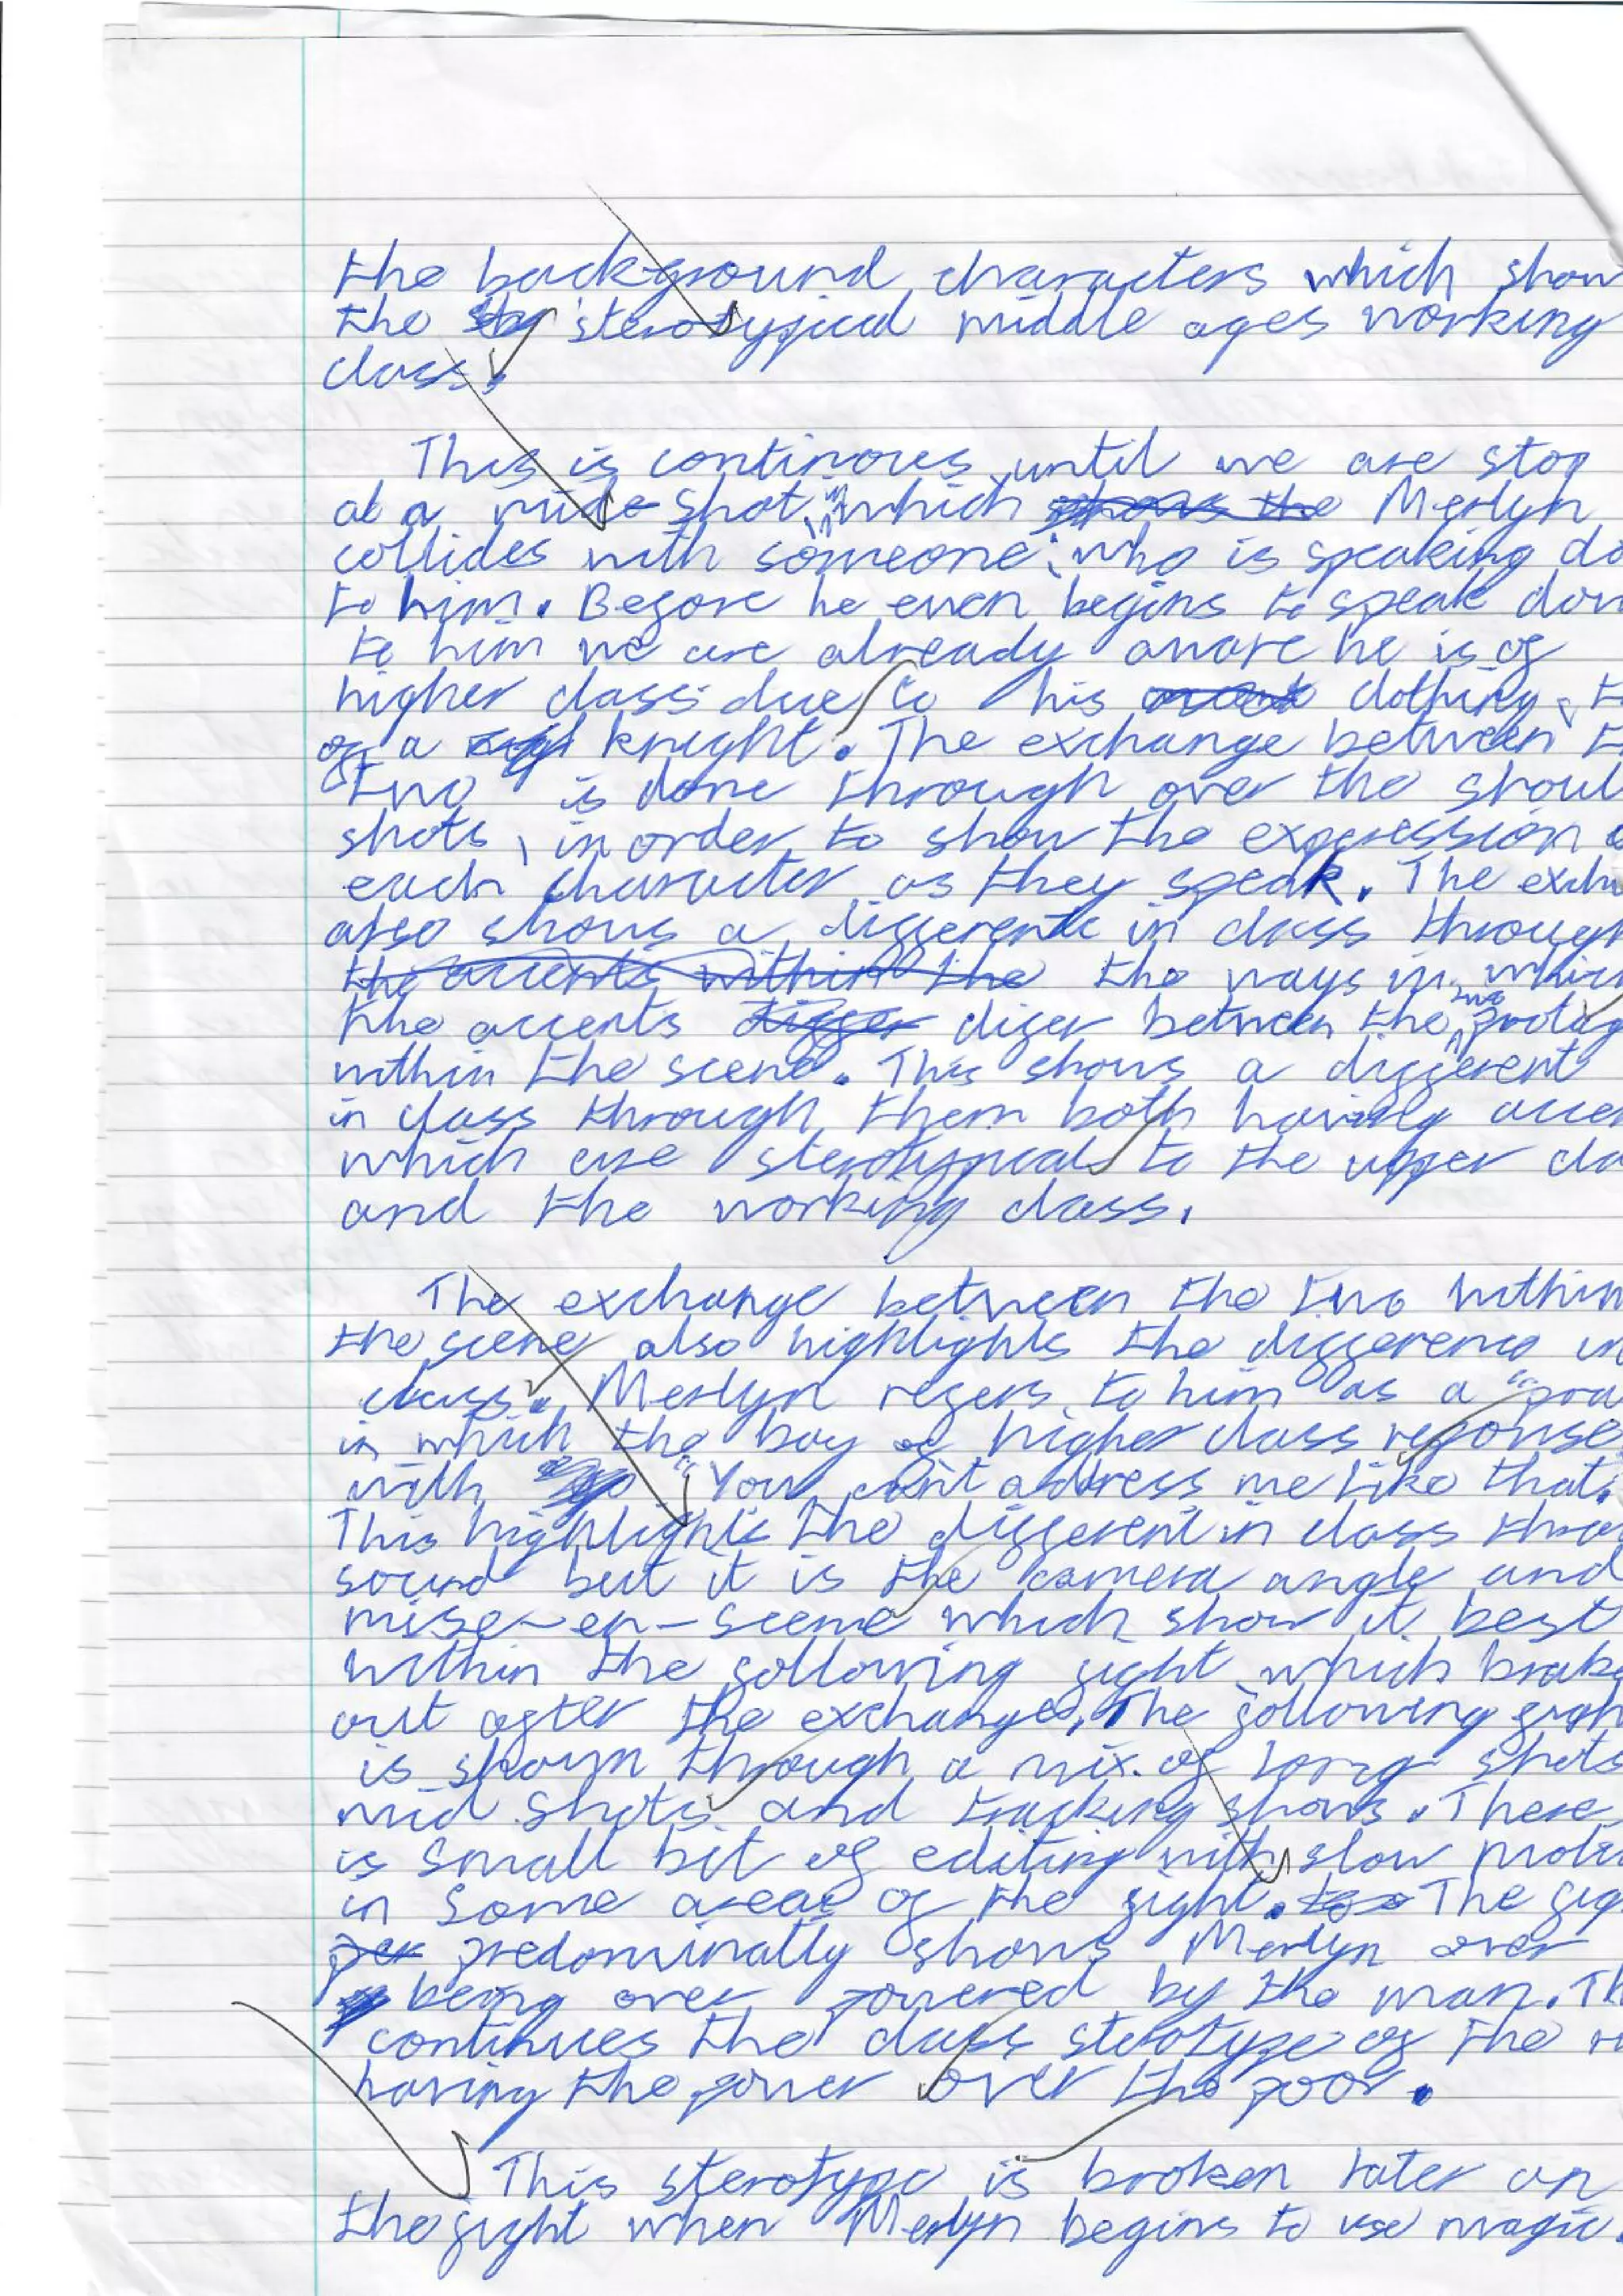 the background characters which show
the sterotypical middle ages working
class.
This is continoues until we are stop
at a wide shot, in which shows the Merlyn
collides with someone who is speaking do
to him. Before he even begins to speak dow
to him we are already aware he is of
higher class due to his clothing, t
of a knight. The exchange between t
two is done through over the shoul
shots, in order to show the expression o
each character as they speak. The excha
also shows a difference in class through
the accents within the the ways in which
the accents differ difer between the two protag
within the scene. This shows a different
in class through them both having accen
which are sterotypical to the upper cla
and the working class.
The exchange between the two within
the scene also highlights the difference in
class. Merlyn refers to him as a "pra
in which the boy of higher class reponse
with "You can't address me like that.
This highlights the different in class throu
sound but it is the camera angle and
mise-en-scene which show it best
within the following fight which brake
out after the exchange. The following figh
is shown through a mix of long shots
mid shots and tracking shows. There
is small bit of editing with slow motio
in some areas of the fight. The fig
per predominally shows Merlyn over
being over powered by the man. Th
continues the class sterotype of the r
having the power over the poor.
This sterotype is broken later on
the fight when Merlyn begins to use magic.